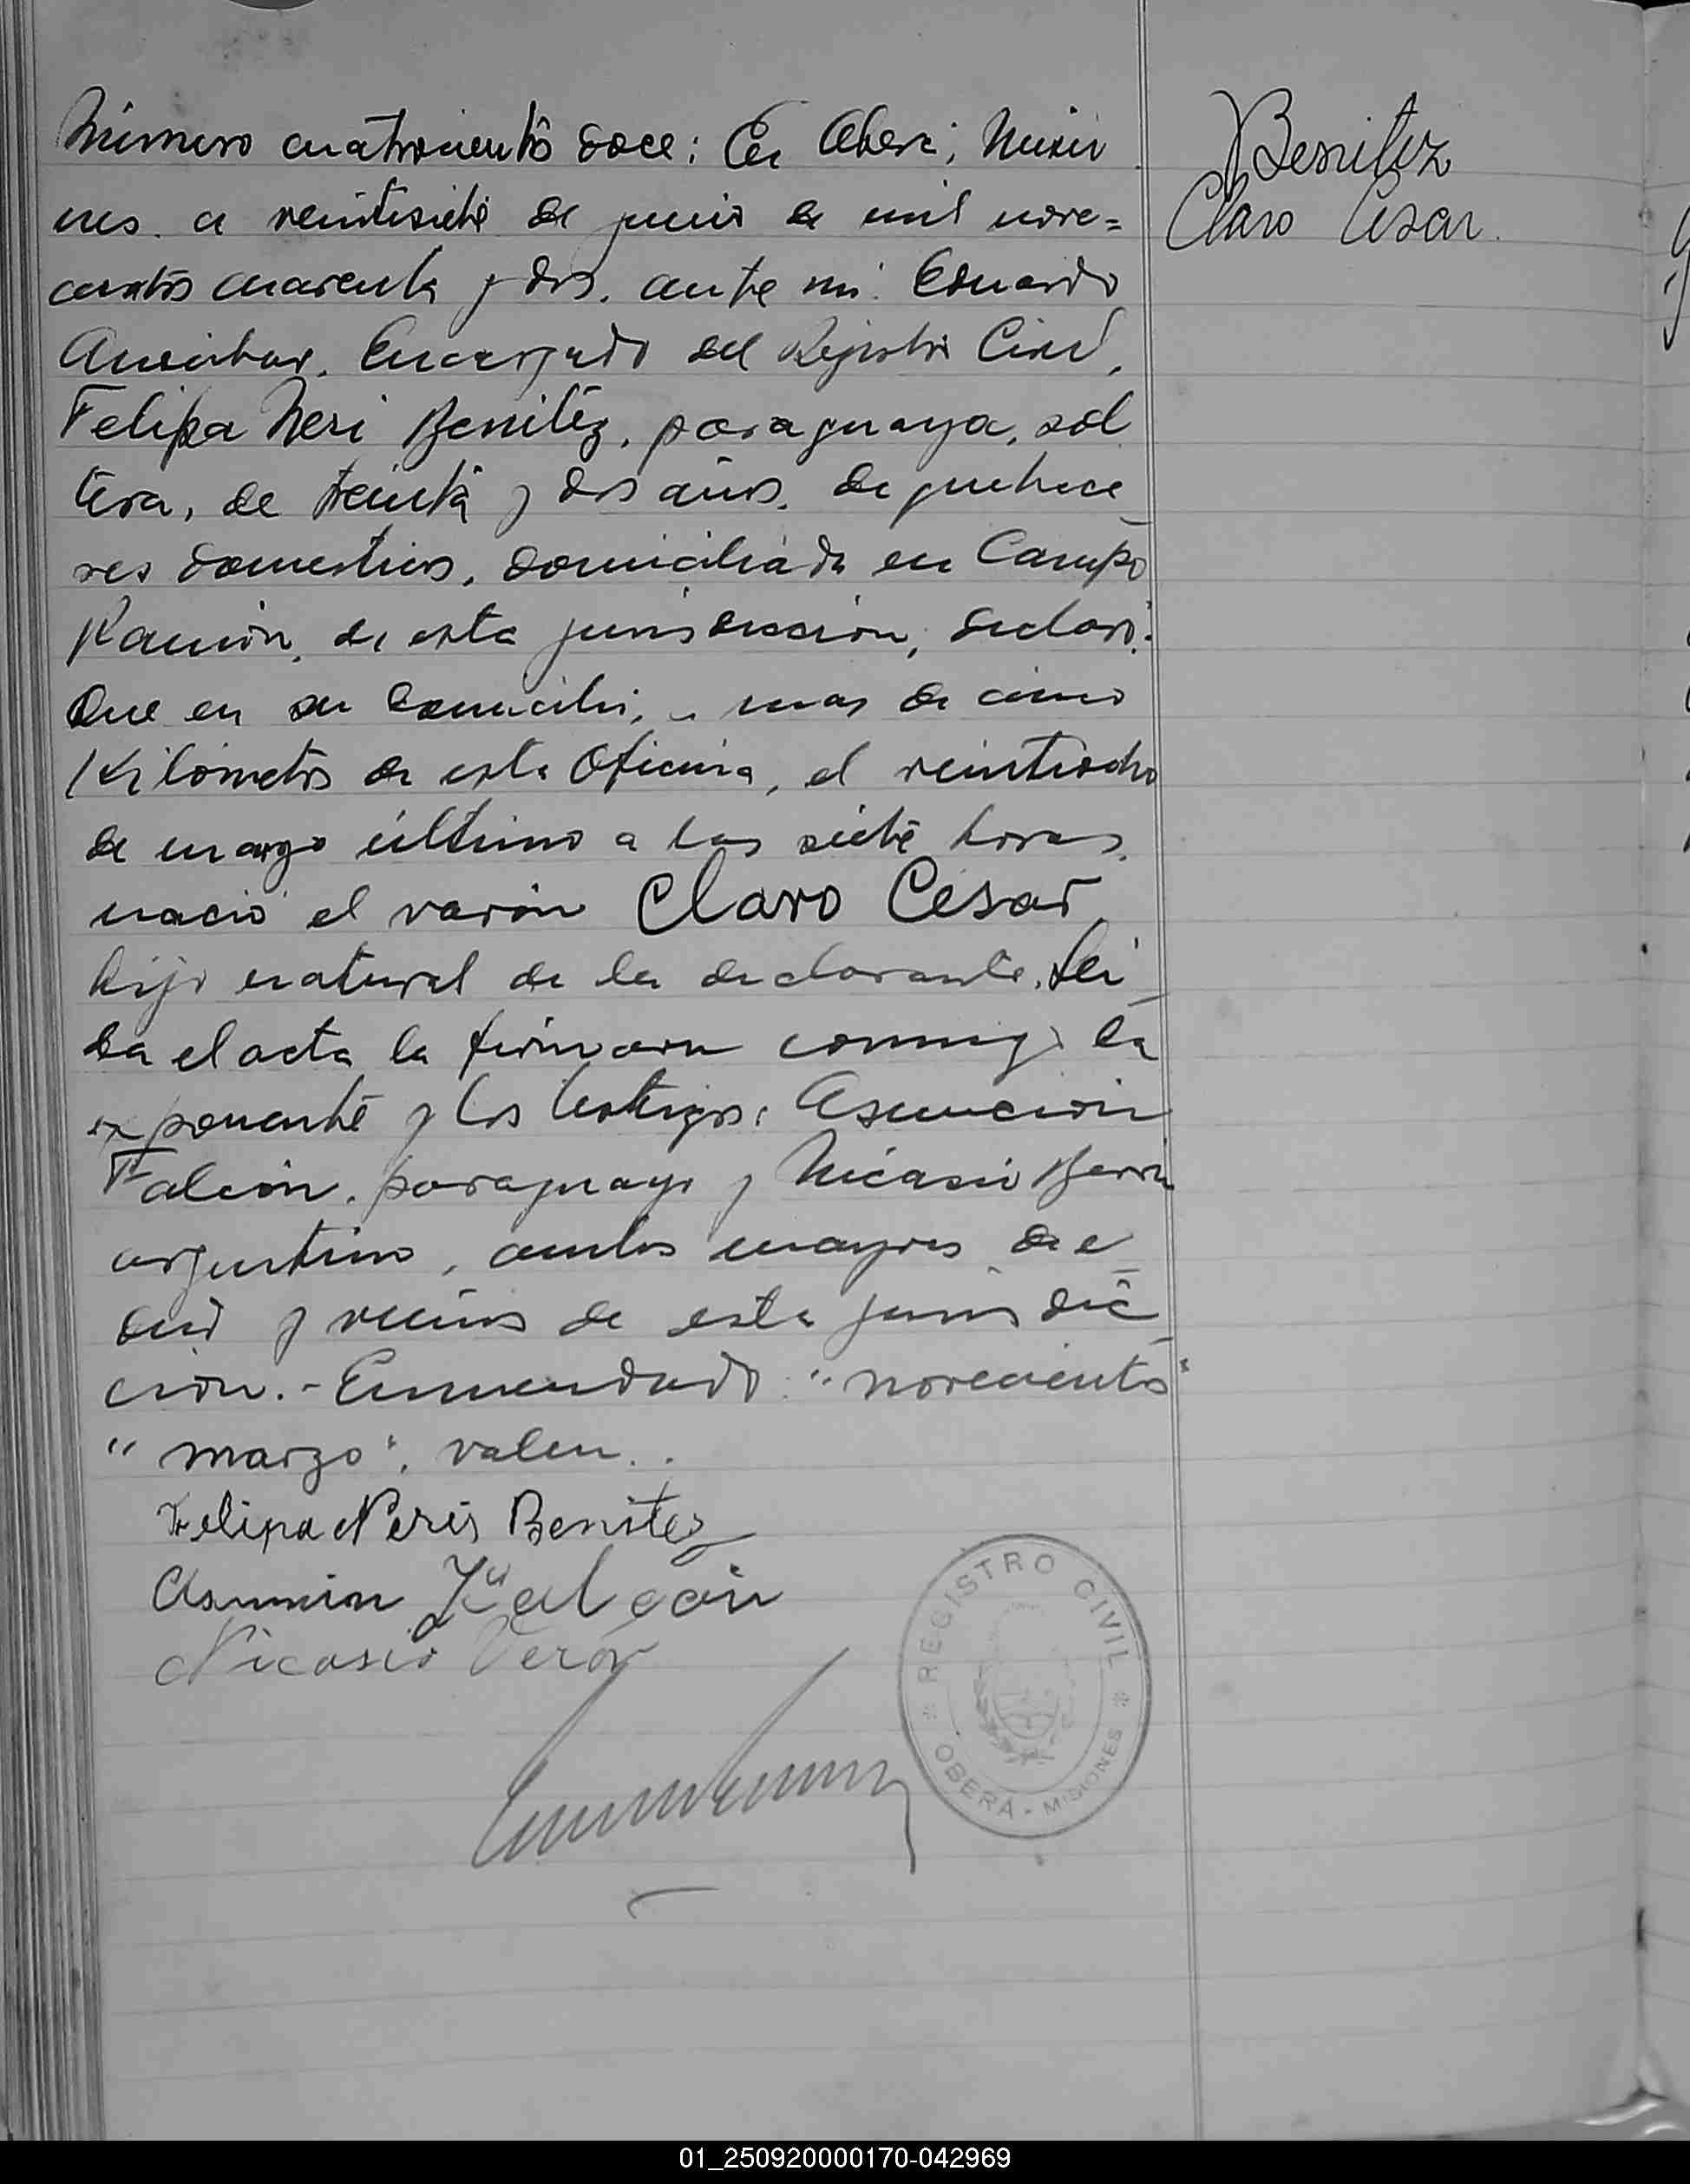 Número cuatrocientos doce: En Oberá, Misio
nes. a veintisiete de junio de mil nove=
cientos cuarenta y dos. ante mi: Eduardo
Encargado del Registro Civil,
Felipa Neri Benitez, paraguaya, sol
tera, de treinta y dos años, de quehace_
res domesticos, domiciliada en Campo
Ramón, de esta jurisdiccion, declaró:
Que en su domicilio, a mas de cinco
Kilómetros de esta Oficina, el veintiocho
de marzo último a las siete horas,
nació el varón Claro César,
hijo natural de la declarante. Lei_
da el acta la firmaron conmigo la
exponente y los testigos: Asuncion
Falcón, paraguayo y Nicasio Beron
argentino, ambos mayores de e_
dad y vecinos de esta jurisdic_
cion.- Enmendado: "novecientos"
"marzo": valen..
Felipa Neris Benitez
Asunción Falcón
Nicasio Verón
Benitez
Claro Cesar.
REGISTRO CIVIL
OBERÁ - MISIONES
01_250920000170-042969